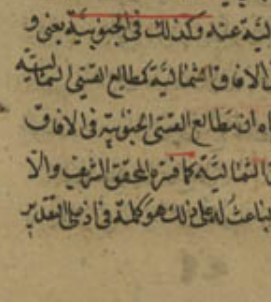 لية عنه وكذلك في الجنوبية يعني و
الافاق الشمالية كمطالع القسي الشمالية
اه ان مطالع القسي الجنوبية في الافاق
الشمالية كما فسره المحقق الشريف والا
باعث له على ذلك هو كلمة في اذ على التقدير